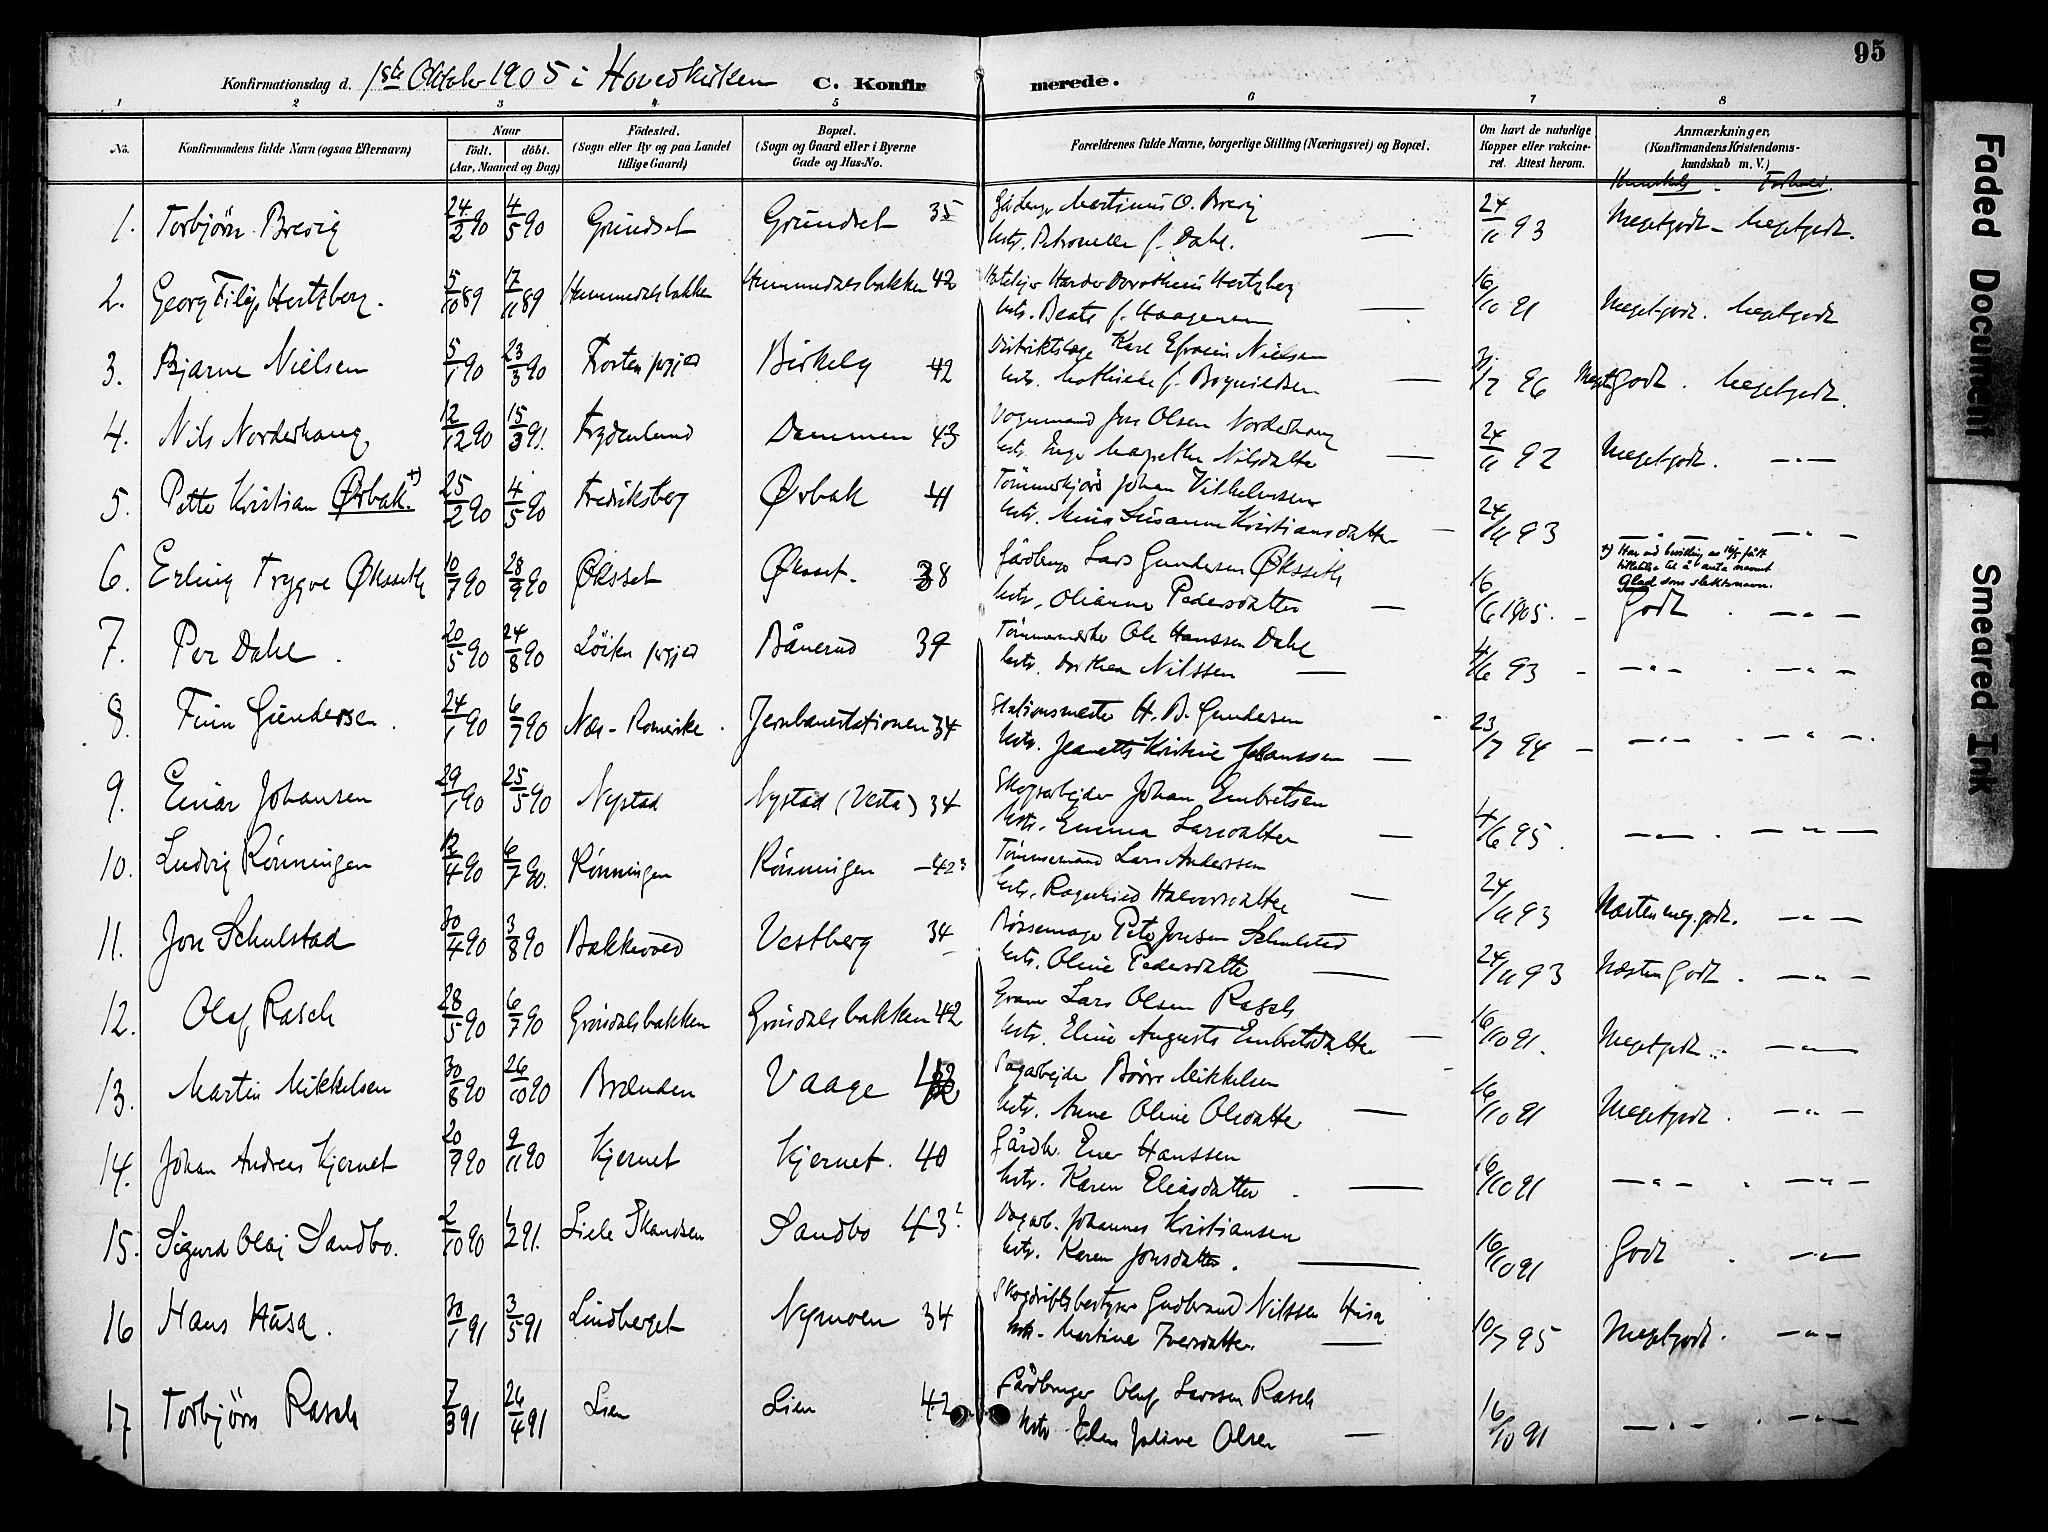 95
Konfirmationsdag d. 1ste Oktober 1905 i Hovedkirken C. Konfirmerede.
1 2 3 4 5 6 7 8
No.
Konfirmandens fulde Navn (ogsaa Efternavn)
Naar
födt. döbt.
(Aar, Maaned og Dag)
Födested.
(Sogn eller By og paa Landet
tillige Gaard)
Bopæl.
(Sogn og Gaard eller i Byerne
Gade og Hus-No.
Forældrenes fulde Navne, borgerlige Stilling (Næringsvei) og Bopæl.
Om havt de naturlige
Kopper eller vakcine-
ret. Attest herom.
Anmærkninger,
(Konfirmandens Kristendoms-
kundskab m. V.)
Kundskab - Forhold.
1. Torbjörn Brevig 24/2 90 4/5 90 Grundset Grundset 35 Martinus O. Brevig
Petronelle f. Dahl. — 24/11 93 Megetgodt - Megetgodt.
2. Georg Filip Hertzberg. 5/10 89 17/11 89 Hummedalsbakken Hummedalsbakken 42 Harder Dorotheus Hertzberg
hstr. Beate f. Haagensen — 16/10 91 Megetgodt. Megetgodt
3. Bjarne Nielsen 5/1 90 23/3 90 Trosten prgjld Birkely 42 Distriktslæge Karl Efraim Nielsen
hstr. Mathilde f. Bognildsen — 31/7 96 Megetgodt. Megetgodt.
4. Nils Norderhaug 12/12 90 15/3 91. Frydenlund Dammen 43 Vognmand Jon Olsen Norderhaug
hstr. Inger Margrethe Nilsdatter — 24/11 92 Megetgodt. — " —
5. Petter Kristian Ørbak. +) 25/2 90 4/5 90 Fredriksberg Ørbak 41 Tömmerkjörer Johan Vilhelmsen
hstr. Mina Susanne Kristiansdatter — 24/11 93 — " — — " —
+) Har ved bevilling av 16/5 fått
tillatelse til å anta navnet
Glad som slektsnavn.
6. Erling Trygve Øksseth 10/7 90 28/9 90 Øksset Øksset. 38 Gårdbrug. Lars Gundersen Øksseth
hstr. Olianne Pedersdatter — 16/6 1905. - Godt . — " —
7. Per Dahl . 20/5 90 24/8 90 Löiten prgjld Bånerud 39 Tömmermerker Ole Hanssen Dahl
hstr. Dorthea Nilssen — 4/6 93 - — " — . — " —
8. Finn Gundersen . 24/1 90 6/7 90 Næs - Romerike . Jernbanestationen 34 Stationsmester H. B. Gundersen
hstr. Jeanette Kristine Johanssen — 23/7 94 - — " — . — " — .
9. Einar Johansen 29/1 90 25/5 90 Nystad Nystad (Vesta) 34 Skogsarbejder Johan Embretsen
hstr. Emma Larsdatter — 4/6 95. — " — . — " —
10. Ludvig Rönningen 12/4 90 6/7 90. Rönningen Rönningen 42 Tömmermand Lars Anderssen
hstr. Ragnhild Halvorsdatter — 24/11 93 Næsten meg. godt. — " —
11. Jon Schulstad 30/4 90 3/8 90 Bakkevold Vestberg 34 Börsemager Peter Jonsen Schulstad
hstr. Oline Pedersdatter — 24/11 93 Næsten Godt . — " —
12. Olaf Rasch 28/5 90 6/7 90 Gröndalsbakken Gröndalsbakken 42 Graver Lars Olsen Rasch
hstr. Eline Augusta Embretsdatter — 16/10 91. Megetgodt . — " —
13. Martin Mikkelsen 30/8 90 26/10 90 Brænden Vaage Dagarbejder Börre Mikkelsen
hstr. Anne Oline Olsdatter — 16/10 91 Megetgodt. — " —
14. Johan Andreas Kjernet 20/9 90 9/11 90 Kjernet Kjernet. 40 Gårdbr. Ener Hanssen
hstr. Karen Eliasdatter . — 16/10 91 — " — . — " —
15. Sigurd Olaj Sandbo. 2/10 90 1/2 91. Lille Skandsen Sandbo 43 Dagarb. Johannes Kristiansen
hstr. Karen Jonsdatter . — 16/10 91 Godt . — " —
16 Hans Husa . 30/1 91 3/5 91 Lindberget Nymoen 34 Skogdriftsbestyrer Gudbrand Nilssen Husa
hstr. Martine Iversdatter. — 10/7 95 Megetgodt. — " —
17 Torbjörn Rasch 7/3 91 26/4 91 Lien Lien 42 Gårdbruger Oluf Larssen Rasch
hstr Elen Joline Olsen — 16/10 91 — " — . — " —
Faded Document
Smeared Ink